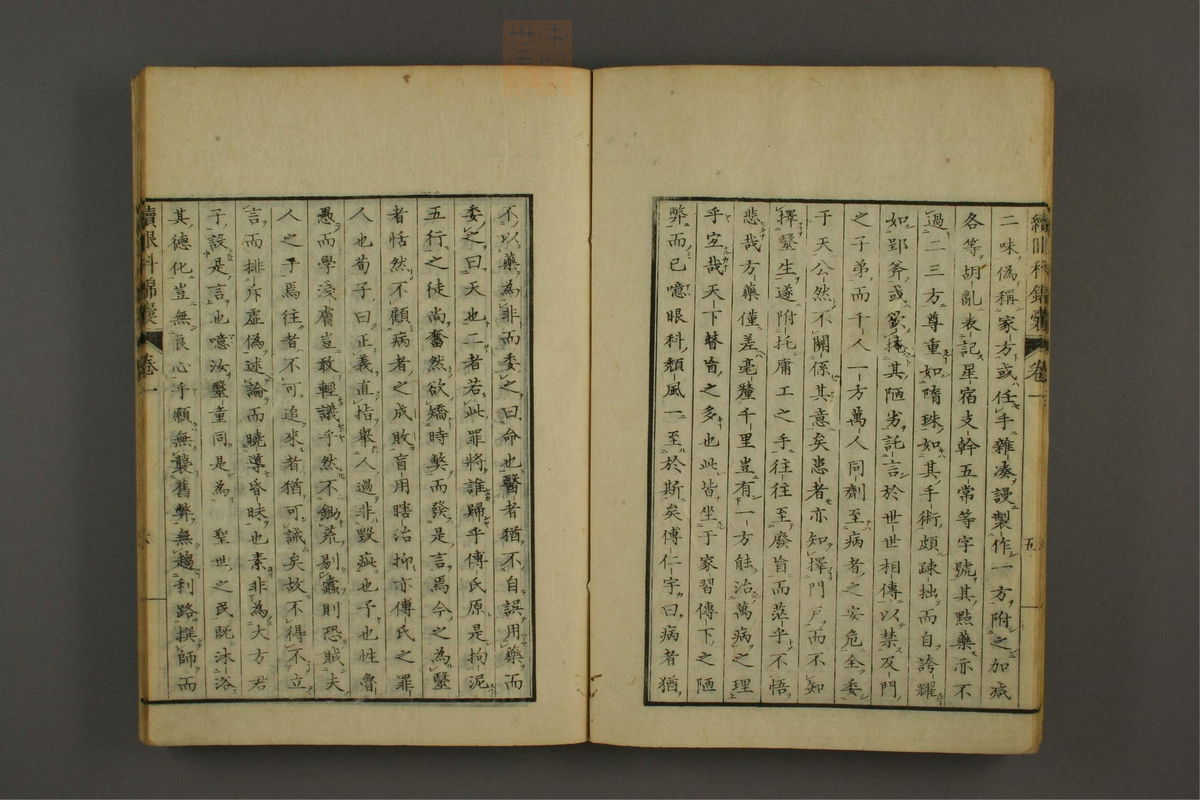 續眼科錦囊 卷一 五
二味偽稱家方或任手雜湊謾製作一方附之加減
各等胡亂表記星宿支幹五常等字號其點藥亦不
過二三方尊重如隋珠如其手術頗疎拙而自誇耀
如郢斧或蒙掩其陋劣託言於世世相傳以禁及門
之子弟而千人一方萬人同劑至病者之安危全委
于天公然不關係其意矣患者亦知擇門戶而不知
擇毉生遂附托庸工之手往往至廢盲而茫乎不悟
悲哉方藥僅差毫釐千里豈有一方能治萬病之理
乎宜哉天下瞽盲之多也此皆坐于家習傳下之陋
弊而已噫眼科頹風一至於斯矣傅仁宇曰病者猶
不以藥為非而委之曰命也醫者猶不自誤用藥而
委之曰天也二者若此罪將誰歸乎傅氏原是拘泥
五行之徒尚奮然欲矯時弊而發是言焉今之為毉
者恬然不顧病者之成敗盲用瞎治抑亦傅氏之罪
人也荀子曰正義直指舉人過非毀疵也予也性魯
愚而學淺膚豈敢輕議乎然不鋤荒剔蠹則恐賊夫
人之子焉往者不可追來者猶可誡矣故不得不立
言而排斥虛偽述論而曉導昏昧也素非為大方君
子設是言也噫汝毉童同是為 聖世之民既沐浴
其德化豈無良心乎願無襲舊弊無趨利路撰師而
續眼科錦囊 卷一 六